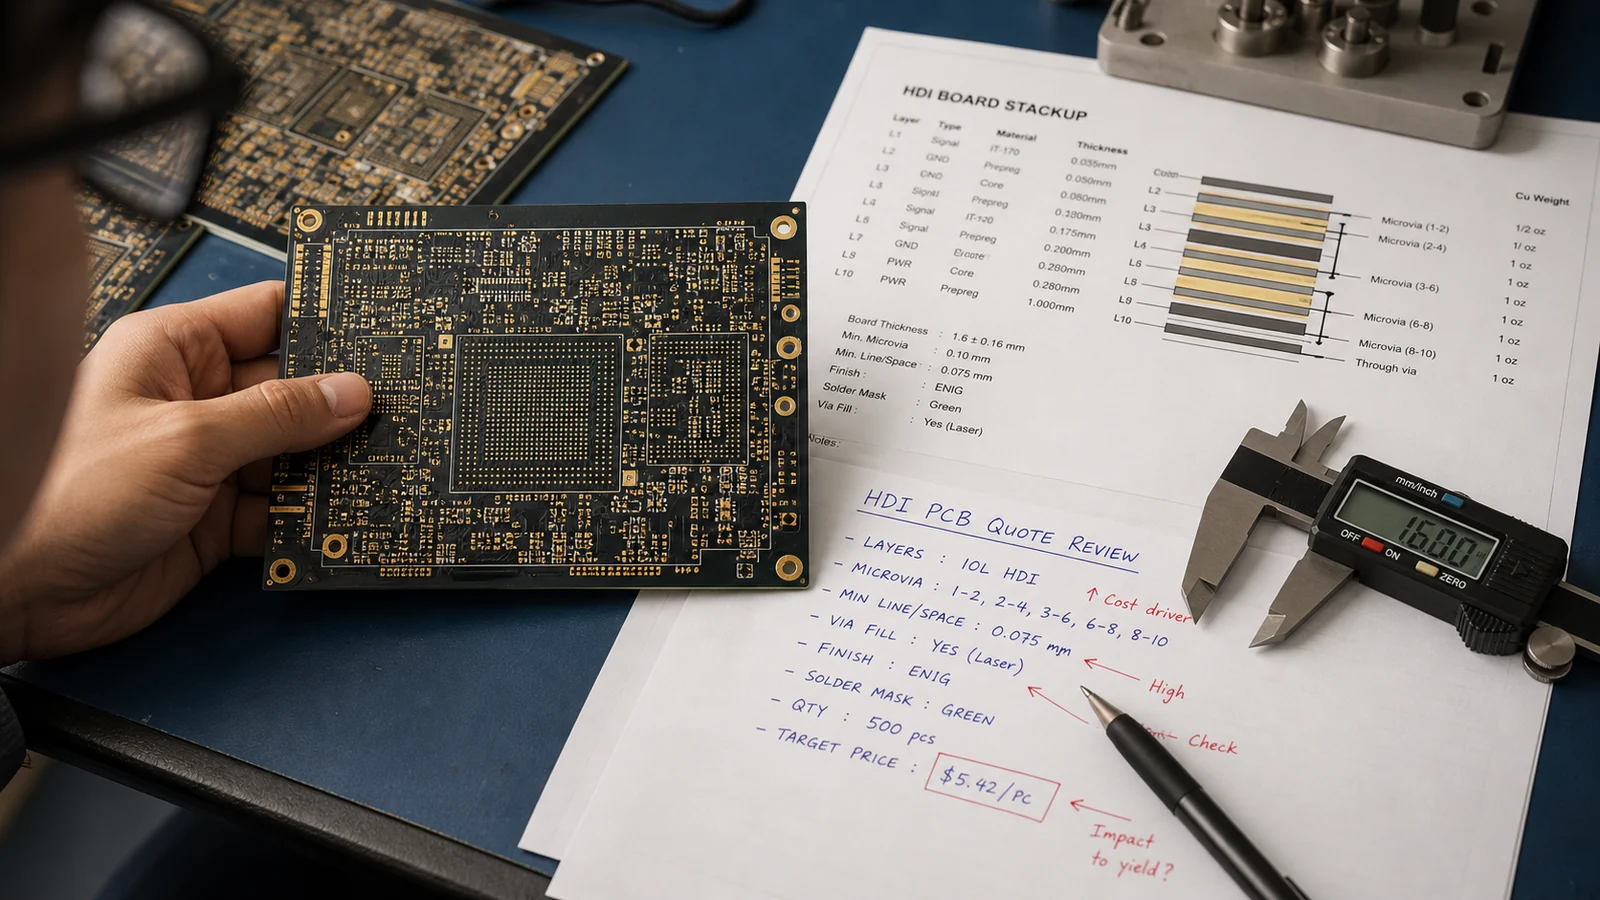 HDI BOARD STACKUP
Layer Type Material Thickness
L1 Signal IT-170 0.035mm
L2 GND Prepreg 0.050mm
L3 GND Core 0.080mm
L3 Signal IT-120
L4 Signal Prepreg 0.175mm
L6 Signal 0.200mm
L7 GND Core 0.280mm
L8 PWR Prepreg 0.280mm
L10 PWR 1.000mm
Board Thickness : 1.6 ± 0.16 mm
Min. Microvia : 0.10 mm
Min. Line/Space : 0.075 mm
Finish : ENIG
Solder Mask : Green
Via Fill : Yes (Laser)
Notes:
Cu Weight
L2
L3
L3
L6
L6
L8
L9
L10
Microvia (1-2) 1/2 oz
Microvia (2-4) 1/ oz
1 oz
Microvia (3-6) 1 oz
1 oz
Microvia (6-8) 1 oz
Microvia (8-10) 1 oz
Through via 1 oz
HDI PCB QUOTE REVIEW
- LAYERS : 10L HDI
↑ Cost driver
- MICROVIA : 1-2, 2-4, 3-6, 6-8, 8-10
- MIN LINE/SPACE : 0.075 mm
High
- VIA FILL : YES (Laser)
Check
- FINISH : ENIG
- SOLDER MASK : GREEN
- QTY : 500 pcs
- TARGET PRICE : $5.42/PC
Impact
to yield?
mm/inch
OFF ON
ZERO